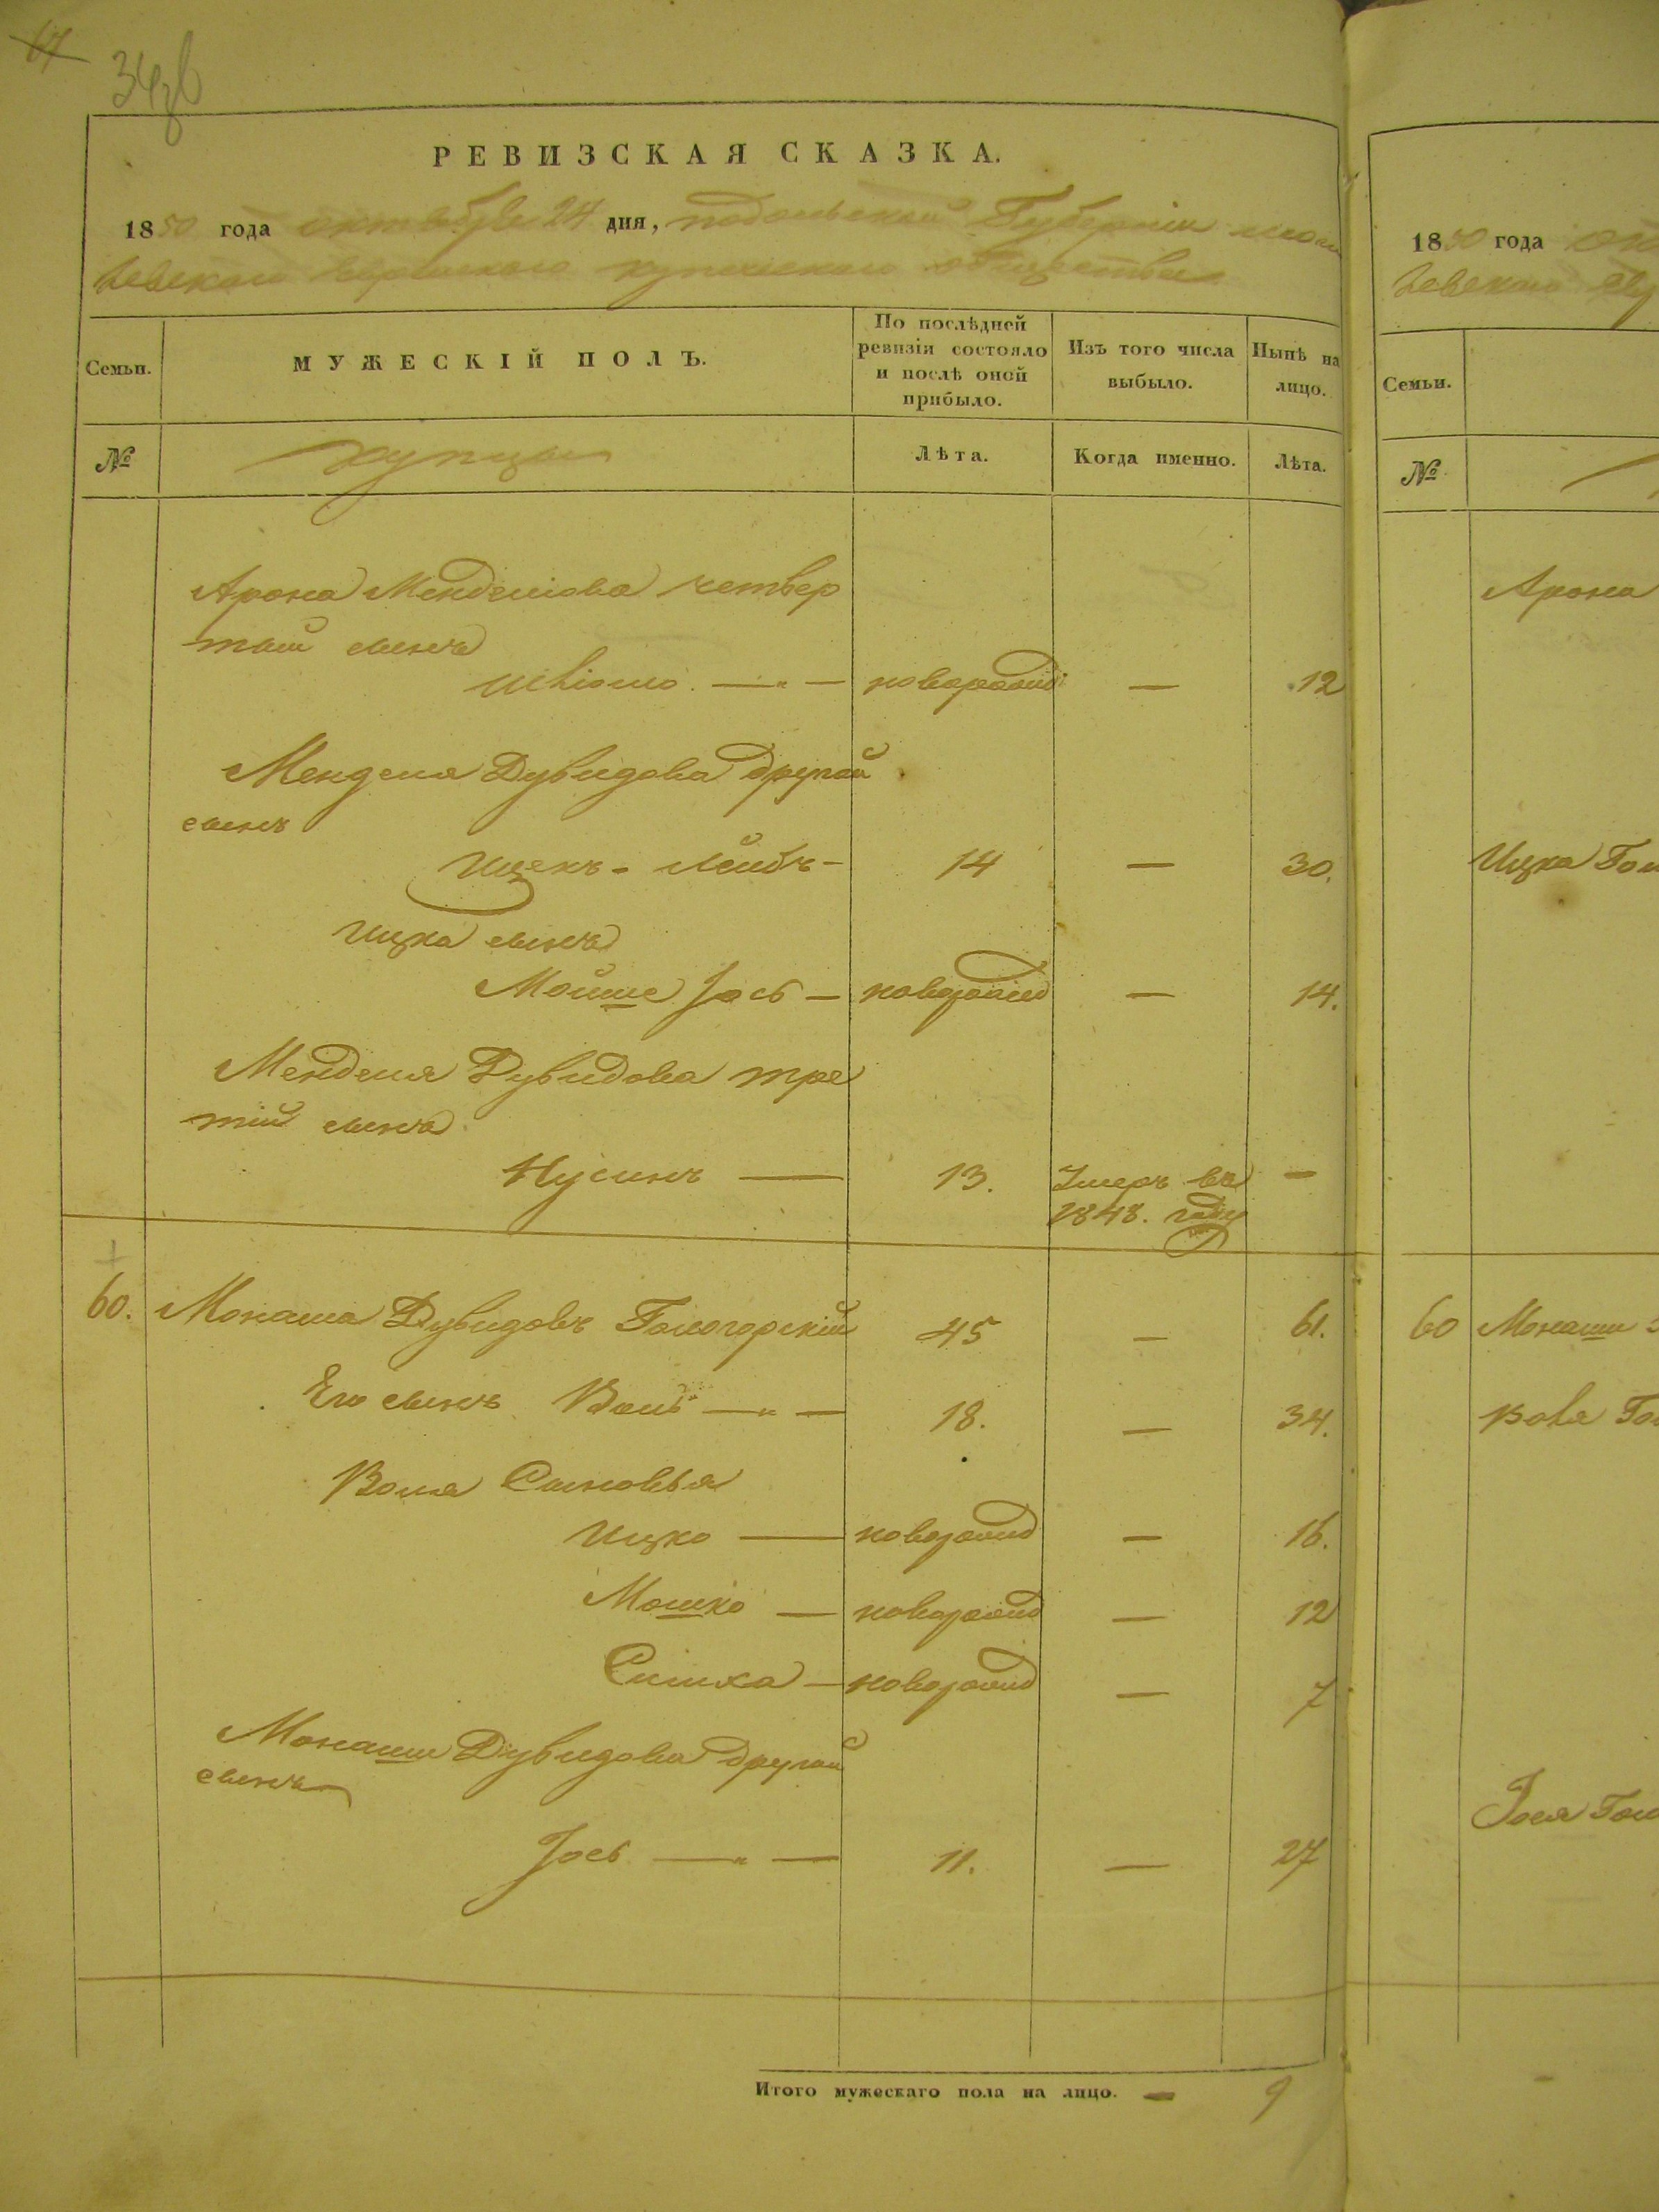 34
РЕВИЗСКАЯ СКАЗКА.
1850 года октября 24 дня, подольской Губерніи моги
левскаго еврейскаго купеческаго общества
Семьи.
МУЖЕСКІЙ ПОЛЪ.
По послѣдней ревизіи состояло и послѣ оной прибыло.
Изъ того числа выбыло.
Нынѣ на лицо.
№
купцы
Лѣта.
Когда именно.
Лѣта.
Арона Менделіова четвер
тый сынъ
новорожд — 12
Менделя Дувидова другой
сынъ
Ицекъ - Лейбъ - 14 — 30.
Ицка сынъ
Мойше Іось — новорожд — 14.
Менделя Дувидова тре
тій сынъ
Нусинъ — 13. Умеръ въ —
1848. году
60. Монаша Дувидовъ Гологорскій 45 — 61.
Его сынъ Воль — 18. — 34.
Воля Сыновья
Ицко — новорожд — 16.
Мошко — новорожд — 12
Симха — новорожд — 7
Монаши Дувидова другой
сынъ
Іось — 11. — 27
Итого мужескаго пола на лицо. — 9
1850 года
левскаго
Семьи.
№
Арона
Ицка
60 Монаши
Вола
Іося